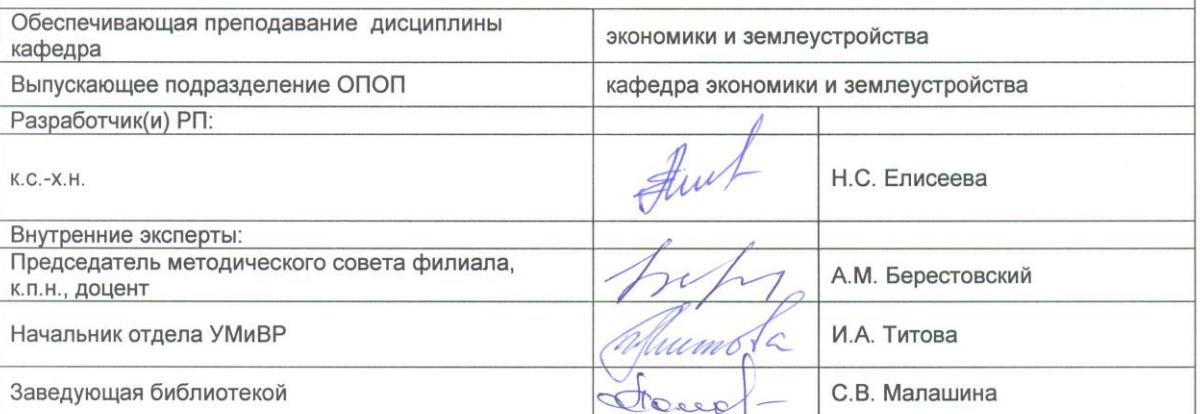 Обеспечивающая преподавание дисциплины
кафедра
экономики и землеустройства
Выпускающее подразделение ОПОП
кафедра экономики и землеустройства
Разработчик(и) РП:
к.с.-х.н.
Н.С. Елисеева
Внутренние эксперты:
Председатель методического совета филиала,
к.п.н., доцент
А.М. Берестовский
Начальник отдела УМиВР
И.А. Титова
Заведующая библиотекой
С.В. Малашина